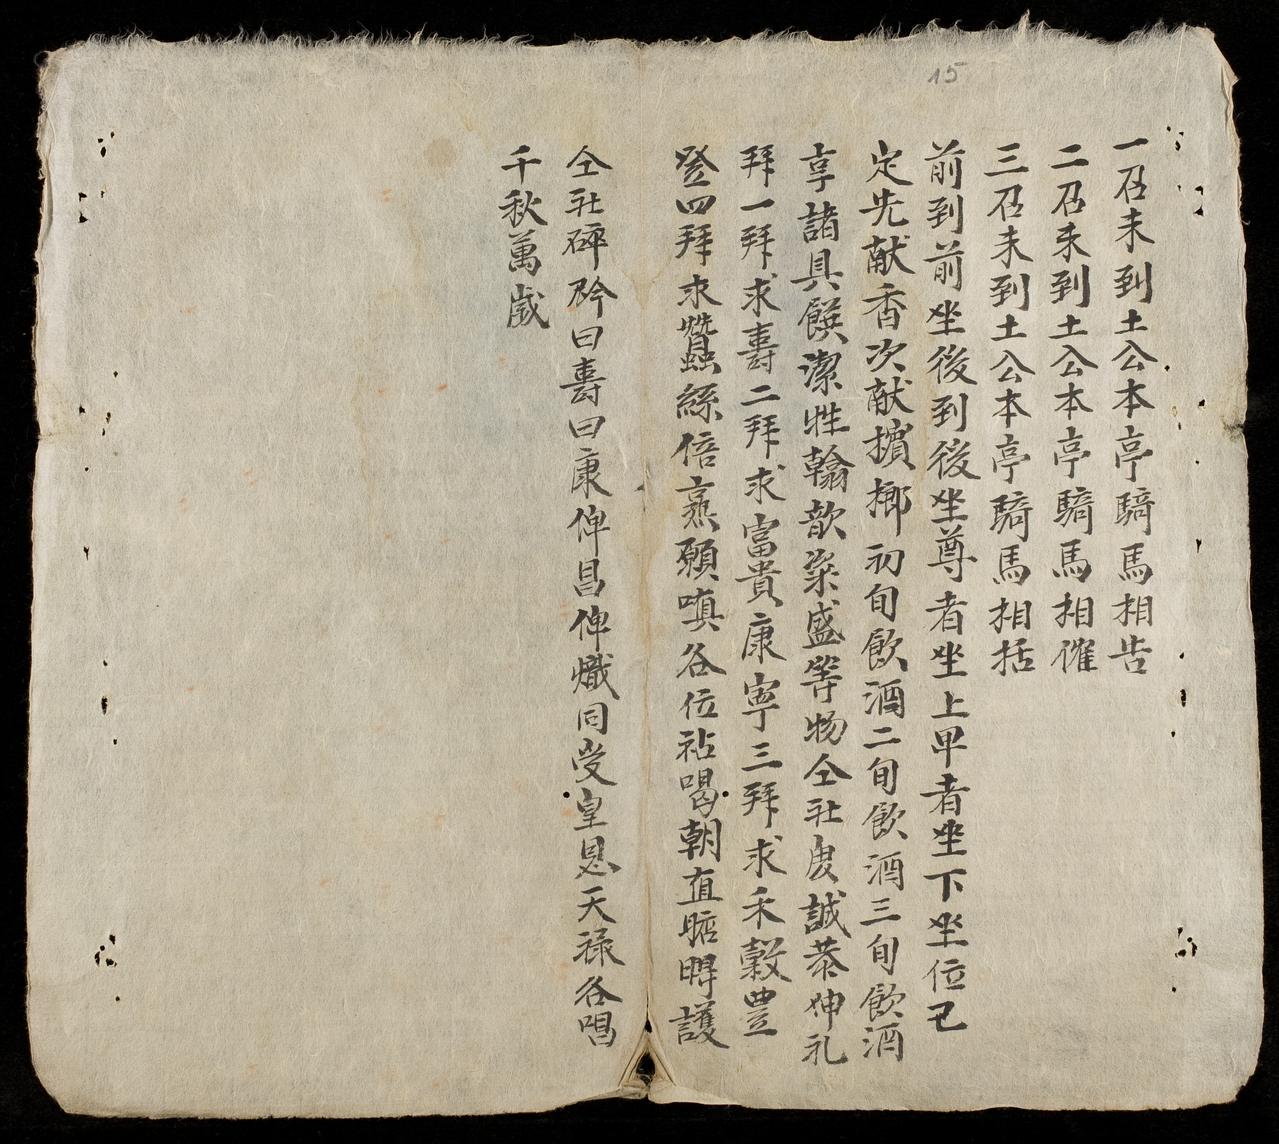 15
一召未到土公本亭騎馬相告
二召未到土公本亭騎馬相催
三召未到土公本亭騎馬相括
前到前坐後到後坐尊者坐上甲者坐下坐位已
定先献香次献擯榔初旬飲酒二旬飲酒三旬飲酒
享諸具饌潔牲翰歆粢盛等物仝社虔誠恭伸礼
拜一拜求壽二拜求富貴康寧三拜求禾穀豊
登四拜求蠶絲倍𫎇願嗔各位祐喝朝直暗暷護
仝社碎矜曰壽曰康俾昌俾熾同受皇恩天祿各唱
千秋萬歲